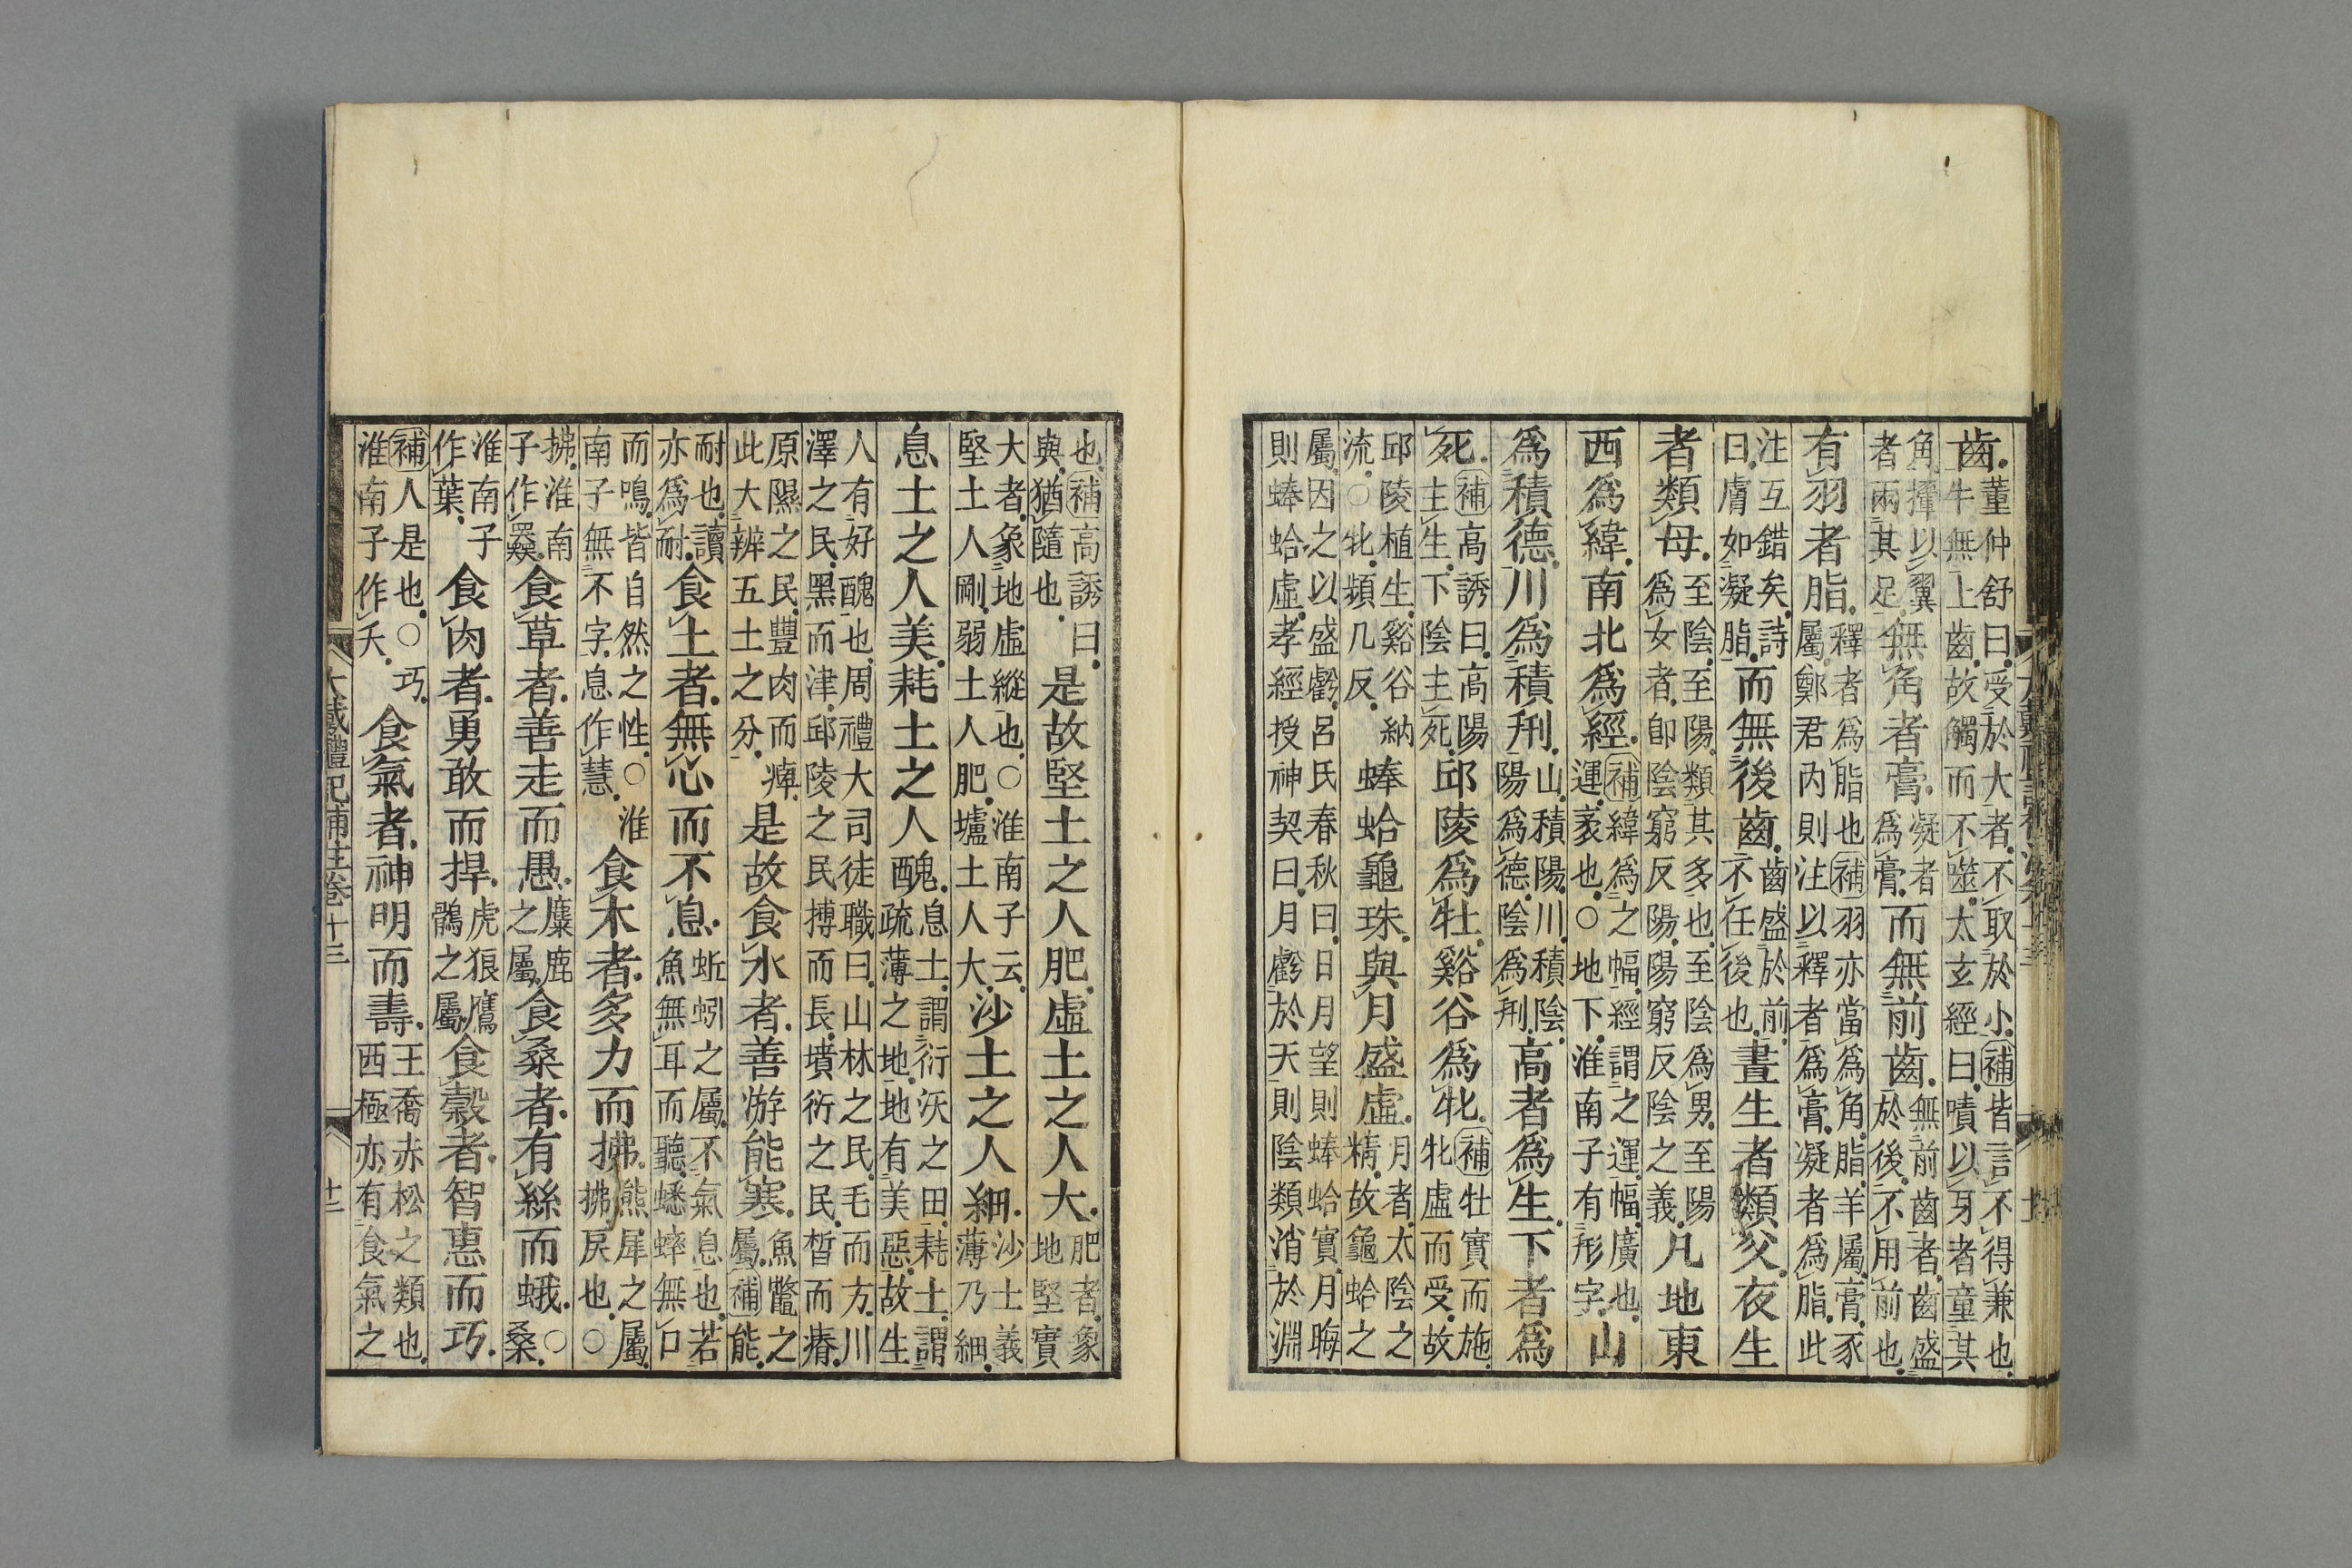 齒。董仲舒曰。受於大者。不取於小。補皆言不得兼也。牛無上齒。故觸而不噬。太玄經曰。嘖以牙者童其
角。撣以翼者兩其足。無角者膏。凝者爲膏。而無前齒。無前齒者。齒盛於後。不用前也。
有羽者脂。釋者爲脂也。補羽亦當爲角。脂。羊屬。膏。豕屬。鄭君內則注以釋者爲膏。凝者爲脂。此
注互錯矣。詩曰。膚如凝脂。而無後齒。齒盛於前。不任後也。晝生者類父。夜生
者類母。至陰。至陽。類其多也。至陰爲男。至陽爲女者。卽陰窮反陽。陽窮反陰之義。凡地東
西爲緯。南北爲經。補緯爲之幅。經謂之運。幅。廣也。運。袤也。○地下。淮南子有形字。山
爲積德。川爲積刑。山積陽。川積陰。陽爲德。陰爲刑。高者爲生。下者爲
死。補高誘曰。高陽主生。下陰主死。邱陵爲牡。谿谷爲牝。補牡實而施。牝虛而受。故
邱陵植生。谿谷納流。○牝。頻几反。蜯蛤龜珠。與月盛虛。月者。太陰之精。故龜蛤之
屬。因之以盛虧。呂氏春秋曰。日月望則蜯蛤實。月晦則蜯蛤虛。孝經授神契曰。月虧於天則陰類消於淵
也。補高誘曰。與。猶隨也。是故堅土之人肥。虛土之人大。肥者。象地堅實
大者。象地虛縱也。○淮南子云。堅土人剛。弱土人肥。壚土人大。沙土之人細。沙土義薄乃細。
息土之人美。耗土之人醜。息土。謂衍沃之田。耗土。謂疏薄之地。地有美惡。故生
人有好醜也。周禮大司徒職曰。山林之民。毛而方。川澤之民。黑而津。邱陵之民。搏而長。墳衍之民。晳而瘠。
原隰之民。豐肉而痺。此大辨五土之分。是故食水者。善游能寒。魚鼈之屬。補能。
耐也。讀亦爲耐。食土者。無心而不息。蚯蚓之屬。不氣息也。若魚無耳而聽。蟋蟀無口
而鳴。皆自然之性。○淮南子無不字。息作慧。食木者。多力而拂。熊犀之屬。拂戾也。○
拂。淮南子作。食草者。善走而愚。麋鹿之屬。食桑者。有絲而蛾。○桑。
淮南子作葉。食肉者。勇敢而捍。虎狼鷹鶻之屬。食穀者。智惠而巧。
補人是也。○巧。淮南子作夭。食氣者。神明而壽。王喬赤松之類也。西極亦有食氣之
大戴禮記補註卷十三 十二